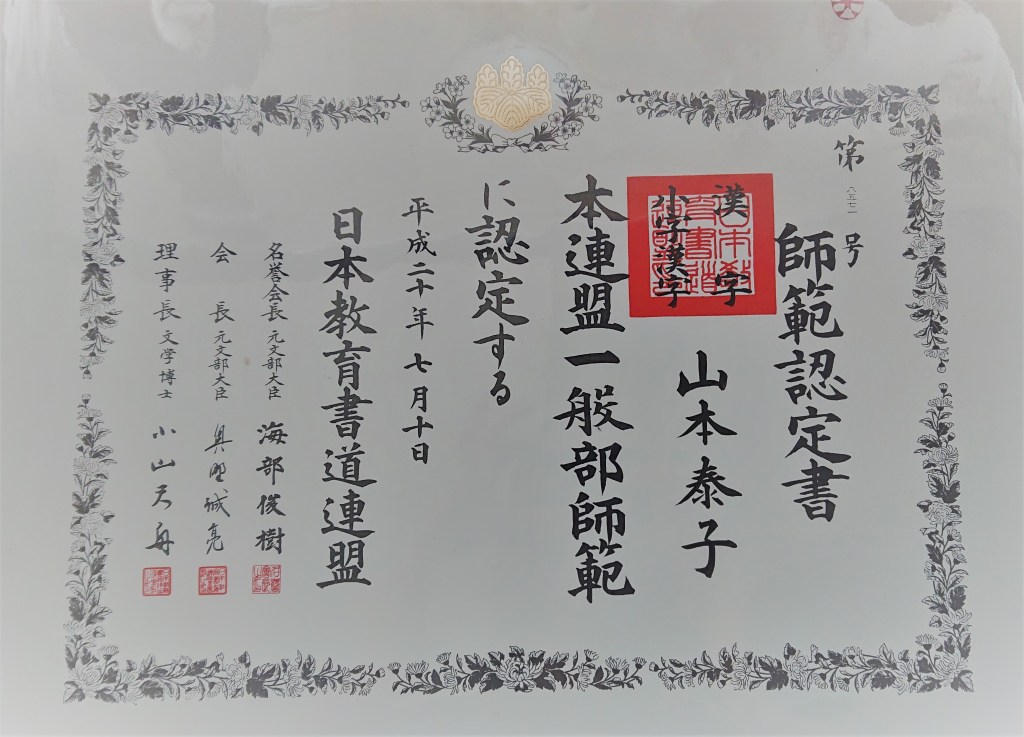 師範認定書
第八五七一号
漢字
小字漢字
山本泰子
本連盟一般部師範
に認定する
平成二十年七月十日
日本教育書道連盟
名誉会長 元文部大臣 海部俊樹
会長 元文部大臣 奥野誠亮
理事長 文学博士 小山天舟